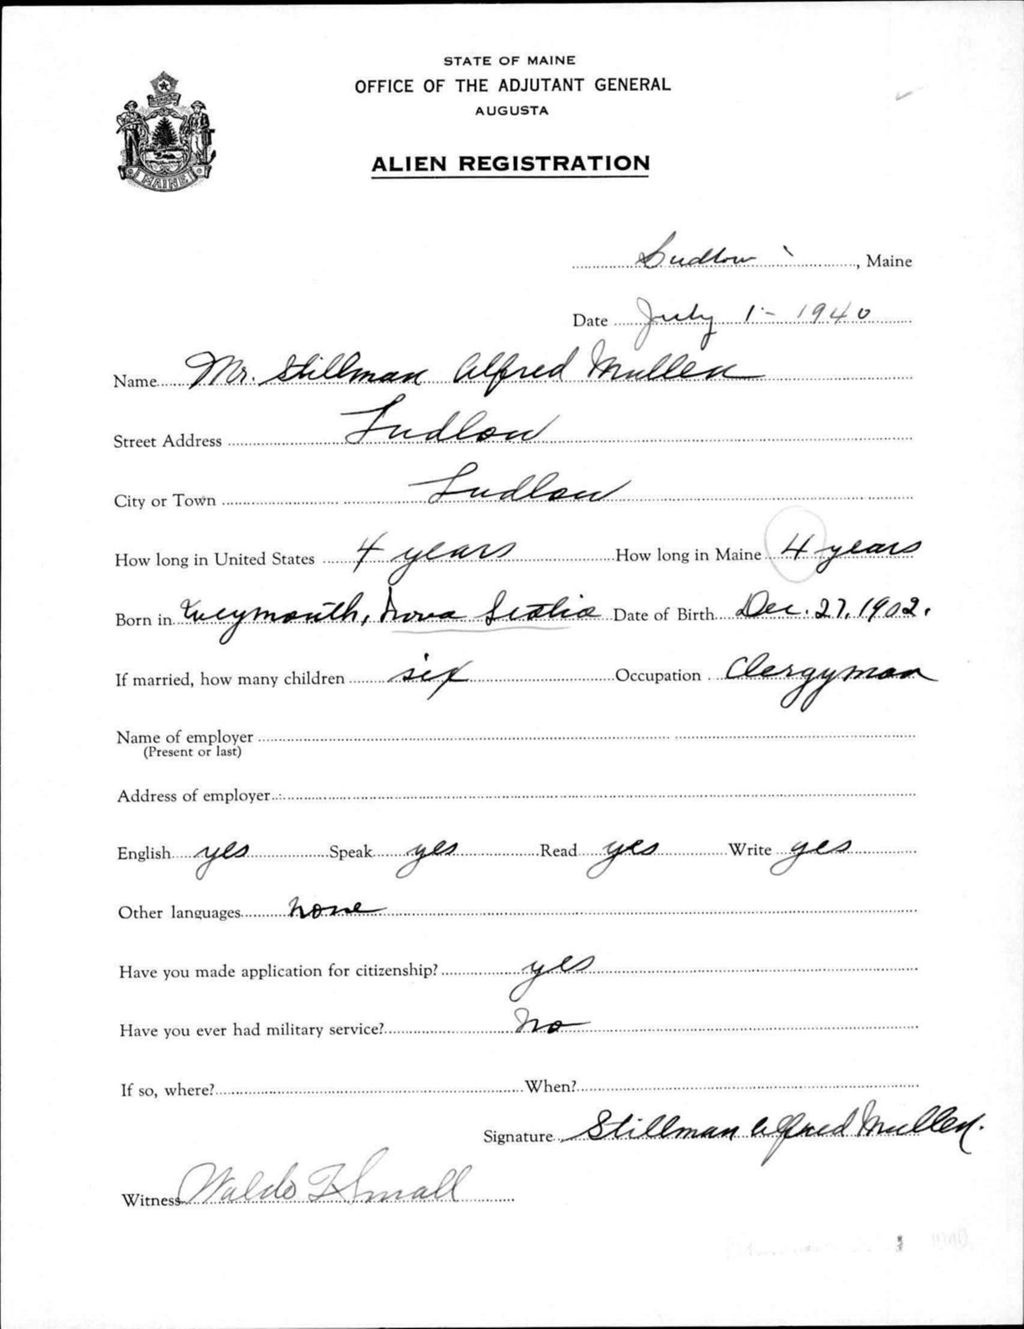 STATE OF MAINE
OFFICE OF THE ADJUTANT GENERAL
AUGUSTA
ALIEN REGISTRATION
MAINE
Ludlow, Maine
Date July 1 - 1940
Name Mr. Stillman Alfred Mullen
Street Address Ludlow
City or Town Ludlow
How long in United States 4 years How long in Maine 4 years
Born in Weymouth, Nova Scotia Date of Birth Dec. 27, 1902.
If married, how many children six Occupation Clergyman
Name of employer
(Present or last)
Address of employer
English yes Speak yes Read yes Write yes
Other languages none
Have you made application for citizenship? yes
Have you ever had military service? No
If so, where? When?
Signature Stillman Alfred Mullen.
Witness Waldo F Small